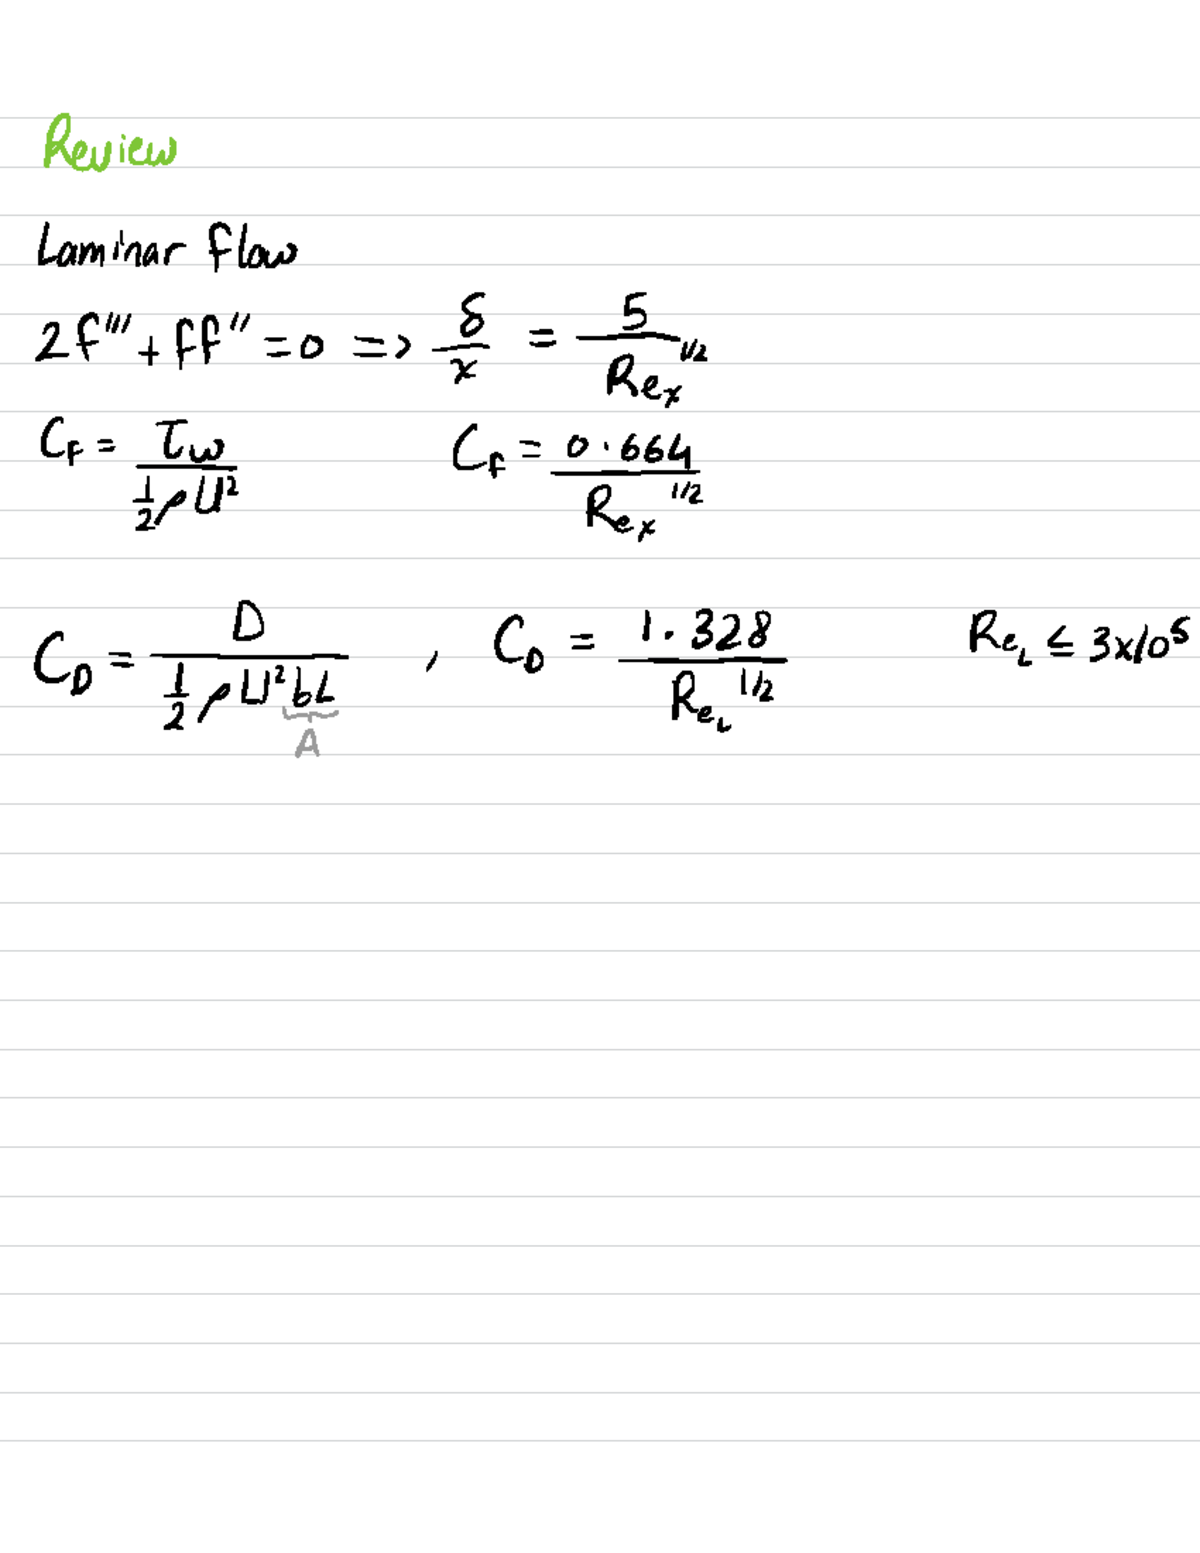 Review
Laminar flow
2f''' + ff'' = 0 => δ/x = 5/Reₓ^1/2
C_f = τ_w / ½ρU²    C_f = 0.664/Reₓ^1/2
C_D = D / ½ρU²bL , C_D = 1.328/Re_L^1/2    Re_L ≤ 3x10⁵
A